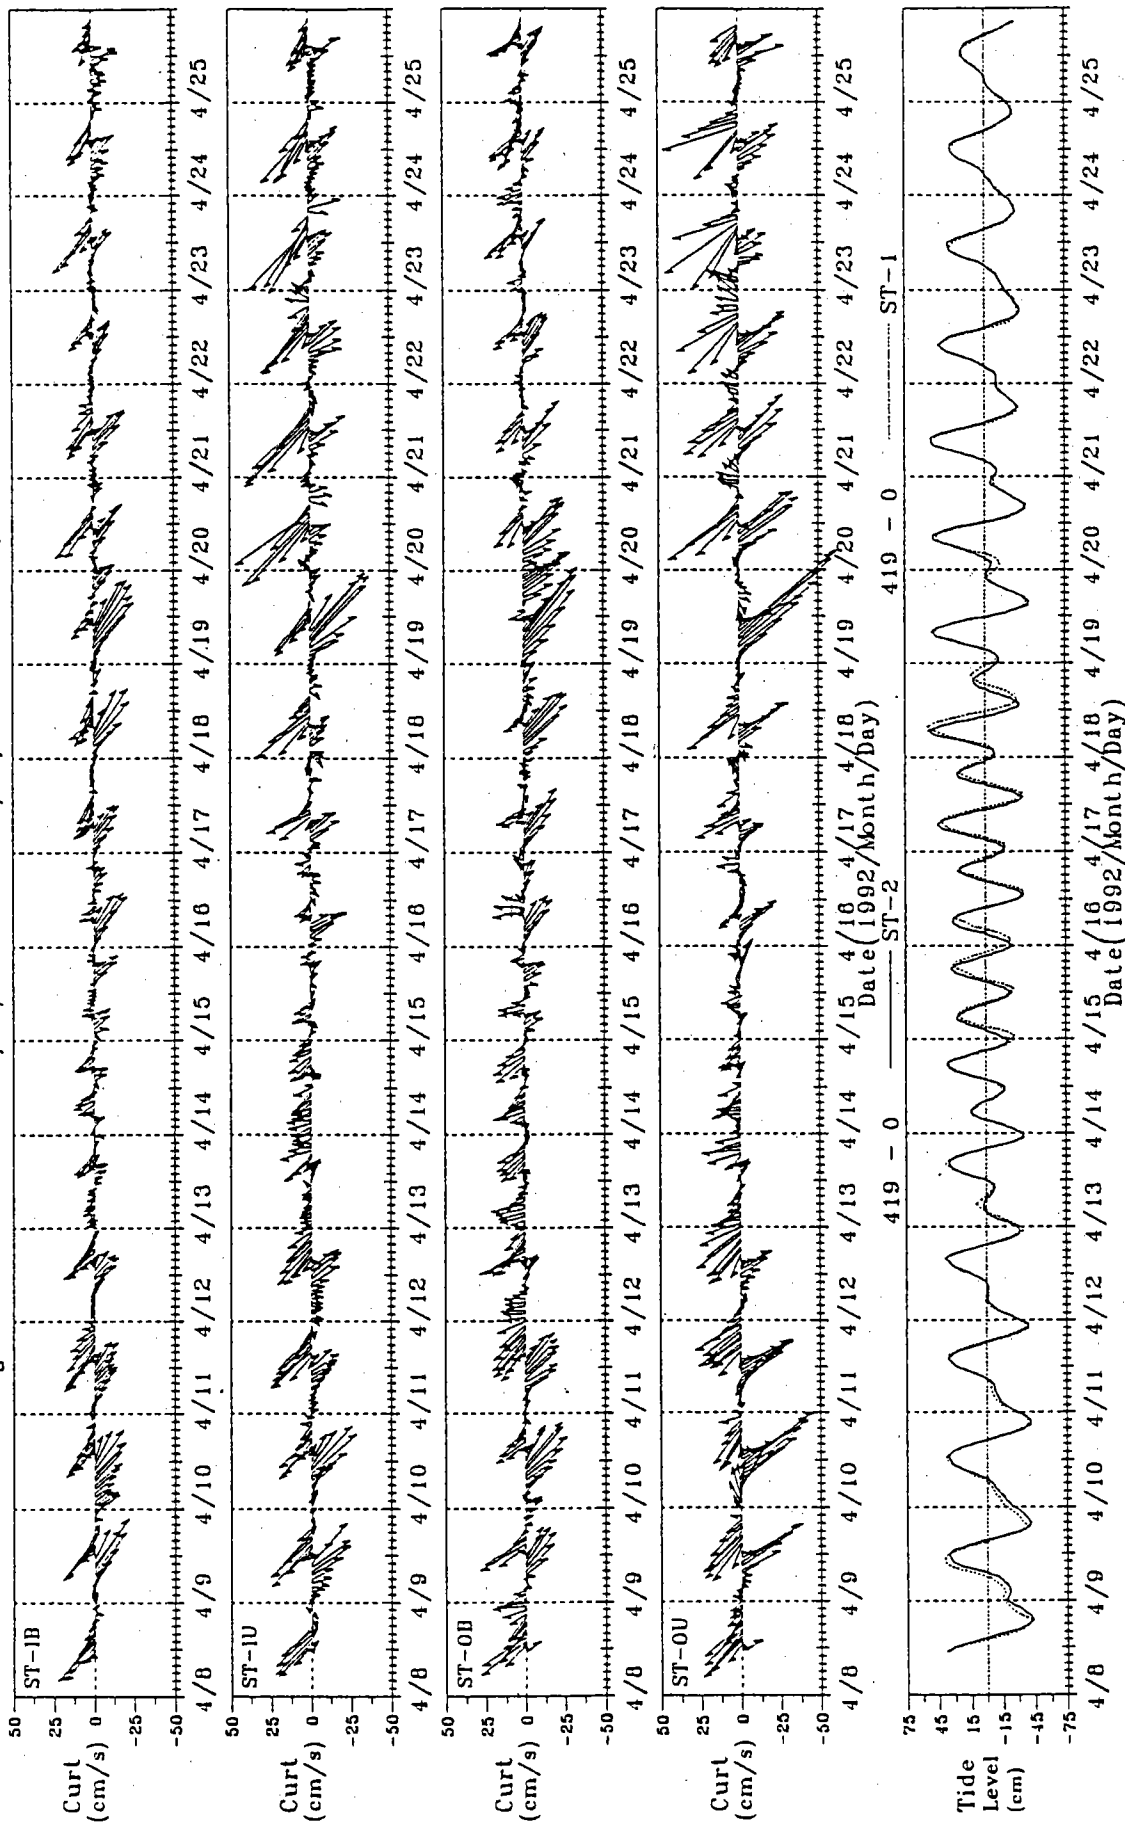 ST-1B
50
25
0
-25
-50
Curt
(cm/s)
4/8 4/9 4/10 4/11 4/12 4/13 4/14 4/15 4/16 4/17 4/18 4/.19 4/20 4/21 4/22 4/23 4/24 4/25
ST-1U
50
25
0
-25
-50
Curt
(cm/s)
4/8 4/9 4/10 4/11 4/12 4/13 4/14 4/15 4/16 4/17 4/18 4/19 4/20 4/21 4/22 4/23 4/24 4/25
ST-0B
50
25
0
-25
-50
Curt
(cm/s)
4/8 4/9 4/10 4/11 4/12 4/13 4/14 4/15 4/16 4/17 4/18 4/19 4/20 4/21 4/22 4/23 4/24 4/25
ST-0U
50
25
0
-25
-50
Curt
(cm/s)
4/8 4/9 4/10 4/11 4/12 4/13 4/14 4/15 4/16 4/17 4/18 4/19 4/20 4/21 4/22 4/23 4/24 4/25
Date(1992/Month/Day)
419 - 0 ST-2 419 - 0 ST-1
75
45
15
-15
-45
-75
Tide
Level
(cm)
4/8 4/9 4/10 4/11 4/12 4/13 4/14 4/15 4/16 4/17 4/18 4/19 4/20 4/21 4/22 4/23 4/24 4/25
Date(1992/Month/Day)